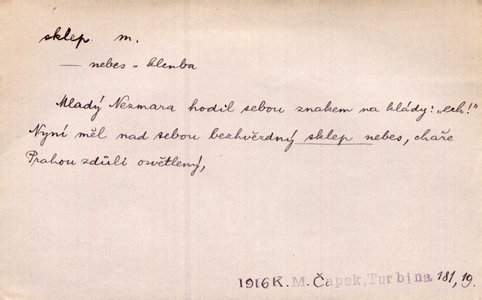 sklep m.
— nebes - klenba
Mladý Nezmara hodil sebou znakem na klády: „ech!"
Nyní měl nad sebou bezhvězdný sklep nebes, chaře
Prahou zdůli osvětlený,
1916 K. M. Čapek, Turbina 181, 19.